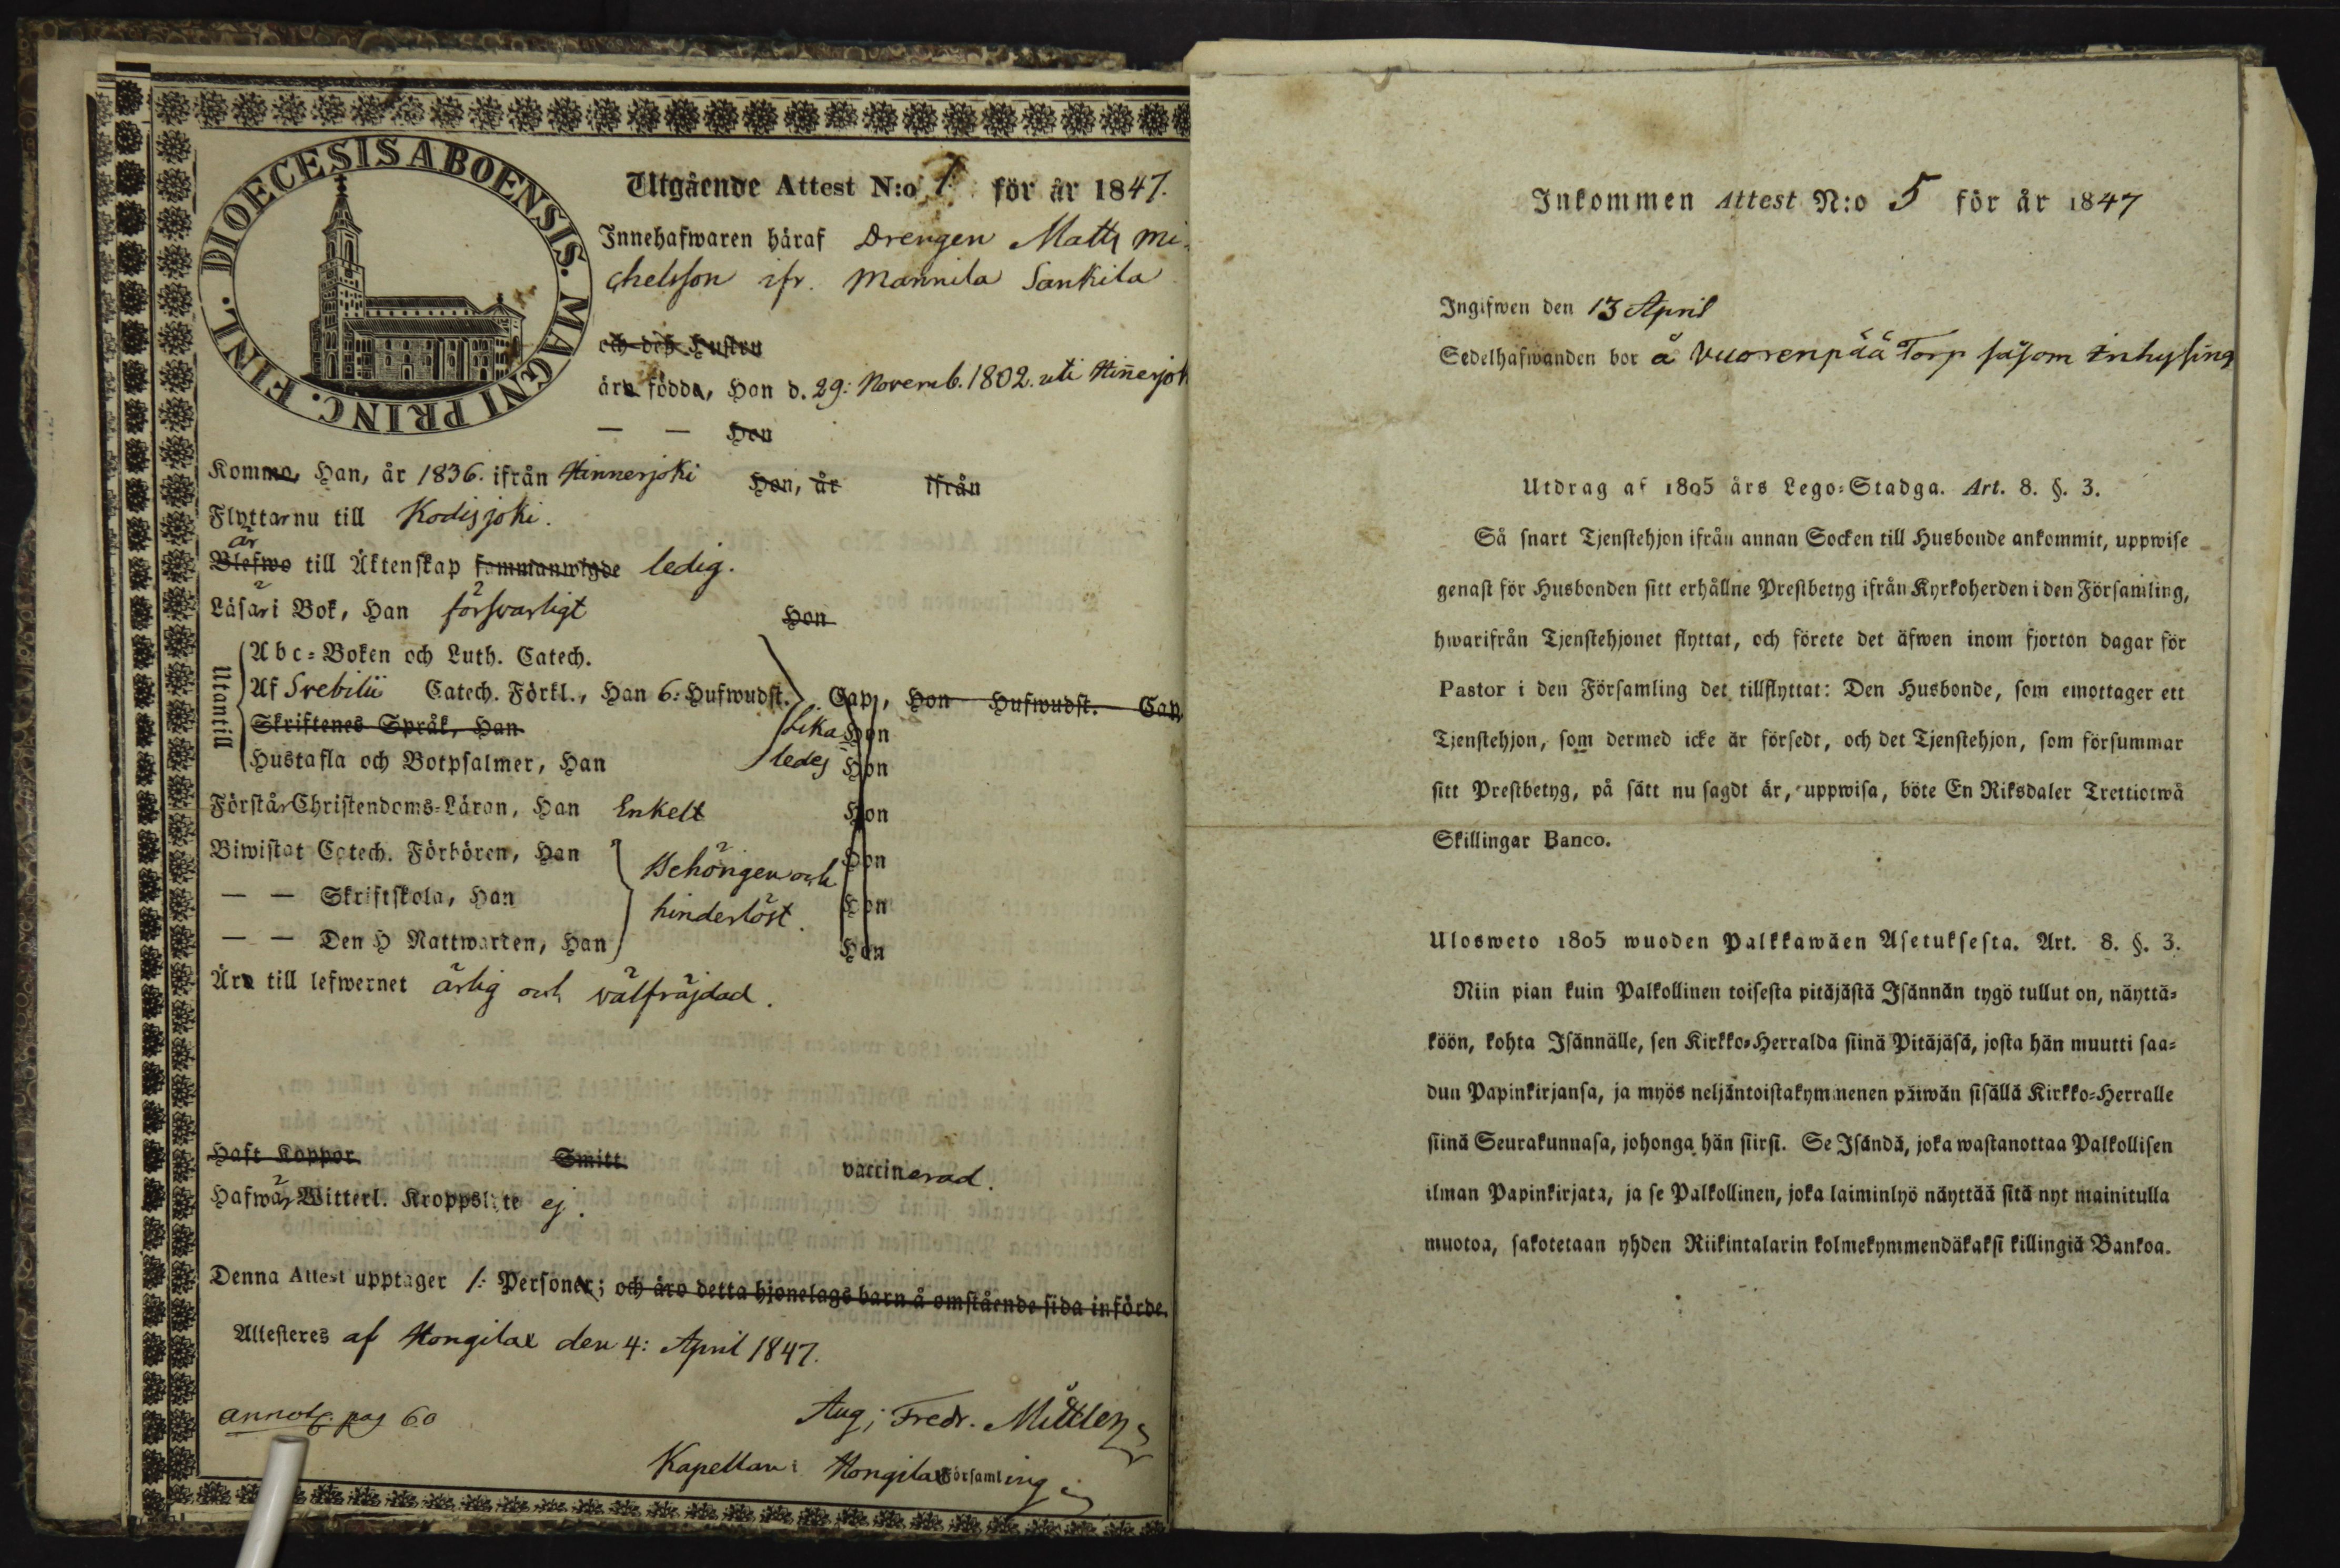 DIOECESIS ABOENSIS. MAGNI PRINC. FINL.
Utgående Attest N:o 1. för år 1847.
Innehafwaren häraf Drengen Matts Mi-
chelsson ifr. Mannila Sankila
och deß Hustru
äro födda, Han d. 29: Novemb. 1802. uti Hinerjoki
— — Hon
Komma, Han, år 1836. ifrån Hinnerjoki Hon, år ifrån
Flyttar nu till Kodisjoki.
är
Blefwo till Äktenskap sammanwigde ledig.
Läsa i Bok, Han försvarligt Hon
Utantill
Abc-Boken och Luth. Catech.
Af Svebilii Catech. Förkl., Han 6: Hufwudst. Cap., Hon Hufwudst. Cap.
Skriftenes Språk, Han Lika Hon
Hustafla och Botpsalmer, Han ledes Hon
Förstår Christendoms-Läran, Han Enkelt Hon
Biwistat Catech. Förhören, Han Behörigen och Hon
— — Skriftskola, Han hinderlöst. Hon
— — Den H Nattwarden, Han Hon
Äro till lefwernet ärlig och välfräjdad.
Haft Koppor Smitt. vaccinerad.
Hafwa Witterl. Kroppslyte ej.
Denna Attest upptager 1: Personer; och äro detta hjonelags barn å omstående sida införde.
Attesteres af Hongilax den 4: April 1847.
annot. pag 60
Aug; Fredr.
Kapellan i Hongilax Församling
Inkommen Attest N:o 5 för år 1847
Ingifwen den 13 April
Sedelhafwanden bor å Vuorenpää Torp såsom Inhysing
Utdrag af 1805 års Lego-Stadga. Art. 8. §. 3.
Så snart Tjenstehjon ifrån annan Socken till Husbonde ankommit, uppwise
genast för Husbonden sitt erhållne Prestbetyg ifrån Kyrkoherden i den Församling,
hwarifrån Tjenstehjonet flyttat, och förete det äfwen inom fjorton dagar för
Pastor i den Församling det tillflyttat: Den Husbonde, som emottager ett
Tjenstehjon, som dermed icke är försedt, och det Tjenstehjon, som försummar
sitt Prestbetyg, på sätt nu sagdt är, uppwisa, böte En Riksdaler Trettiotwå
Skillingar Banco.
Ulosweto 1805 wuoden Palkkawäen Asetuksesta. Art. 8. §. 3.
Niin pian kuin Palkollinen toisesta pitäjästä Isännän tygö tullut on, näyttä-
köön, kohta Isännälle, sen Kirkko-Herralda siinä Pitäjäsä, josta hän muutti saa-
dun Papinkirjansa, ja myös neljäntoistakymmenen päiwän sisällä Kirkko-Herralle
siinä Seurakunnasa, johonga hän siirsi. Se Isändä, joka wastanottaa Palkollisen
ilman Papinkirjata, ja se Palkollinen, joka laiminlyö näyttää sitä nyt mainitulla
muotoa, sakotetaan yhden Riikintalarin kolmekymmendäkaksi killingiä Bankoa.